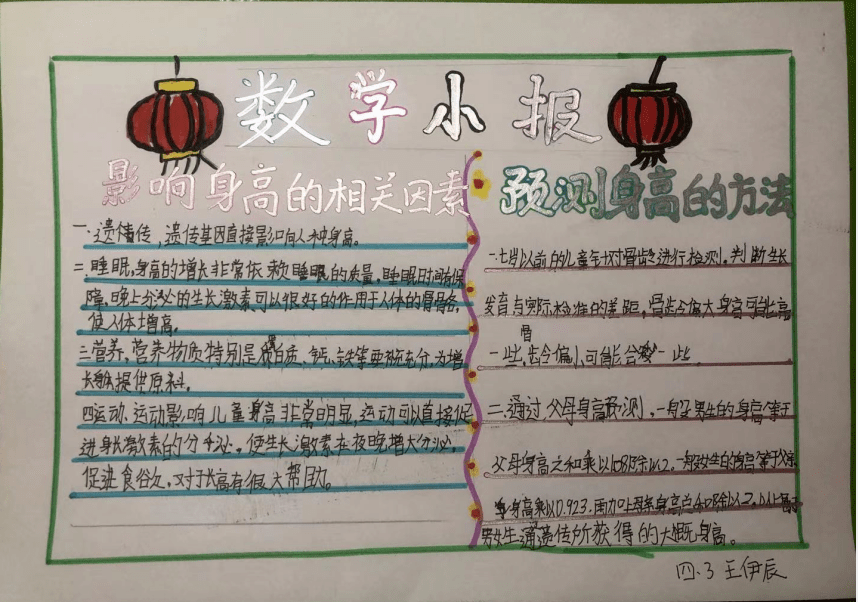 数学小报
影响身高的相关因素
一.遗传,遗传基因直接影响人种身高。
二.睡眠,身高的增长非常依赖睡眠的质量,睡眠时间有保
障,晚上分泌的生长激素可以很好的作用于人体的骨骨各,
使人体增高。
三营养,营养物质特别是蛋白质、钙、铁等要补充充分,为增
长身体提供原料。
四运动、运动影响儿童身高非常明显,运动可以直接促
进身长激素的分泌,使生长激素在夜晚增大分泌,
促进食谷欠,对于长高有很大帮助。
预测身高的方法
一.七岁以前的儿童针对骨龄进行检测。判断生长
发育与实际标准的差距,骨龄偏大身高可能高
一些,骨龄偏小可能会矮一些.
二.通过父母身高预测,一般男生的身高等于
父母身高之和乘以1.08除以2.一般女生的身高等于父亲
身高乘以0.923.再加上母亲身高之和除以2.以上属于
男女生通遗传所获得的大概身高。
四.3 王伊辰